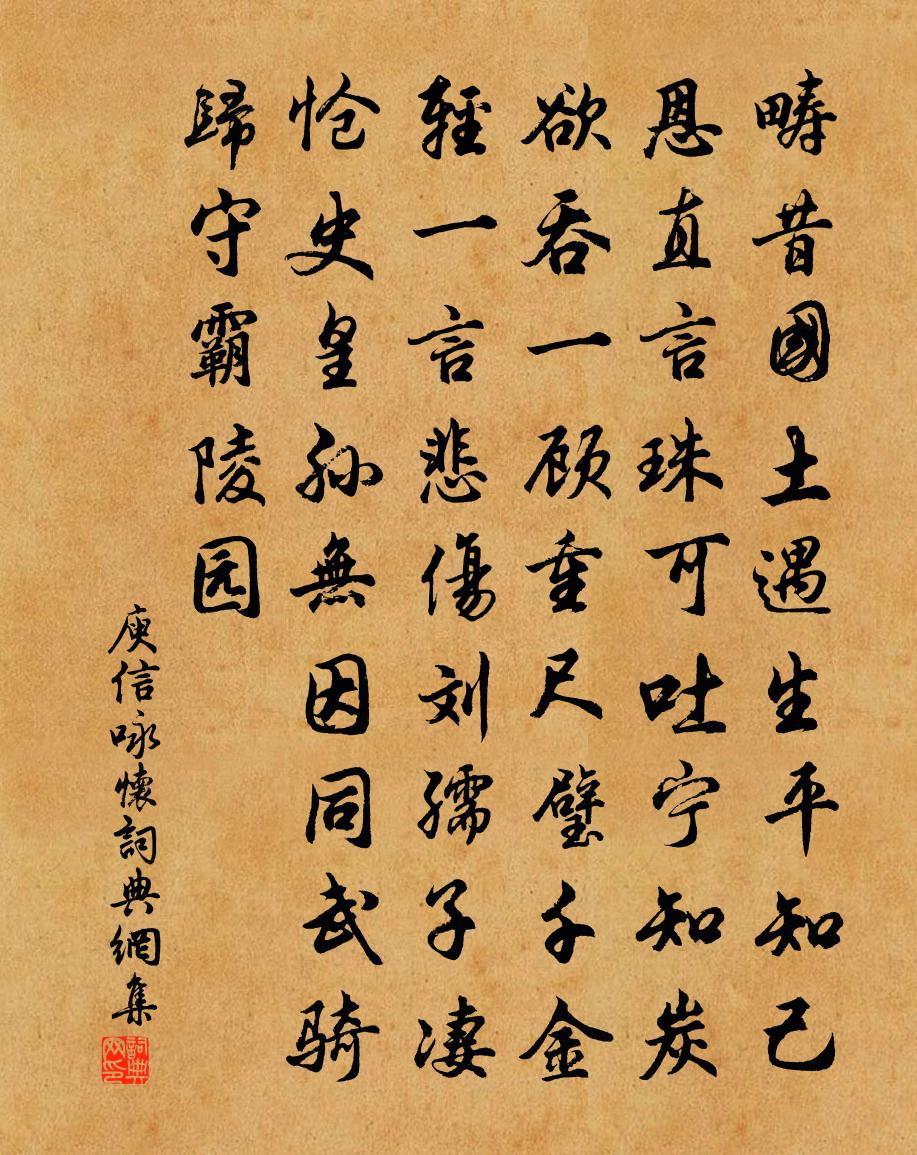 疇昔國土遇生平知己
恩直言珠可吐宁知炭
欲吞一顾重尺璧千金
輕一言悲傷刘孺子凄
怆史皇孙無因同武骑
歸守霸陵园
庾信咏懷詞典網集
詞典网印